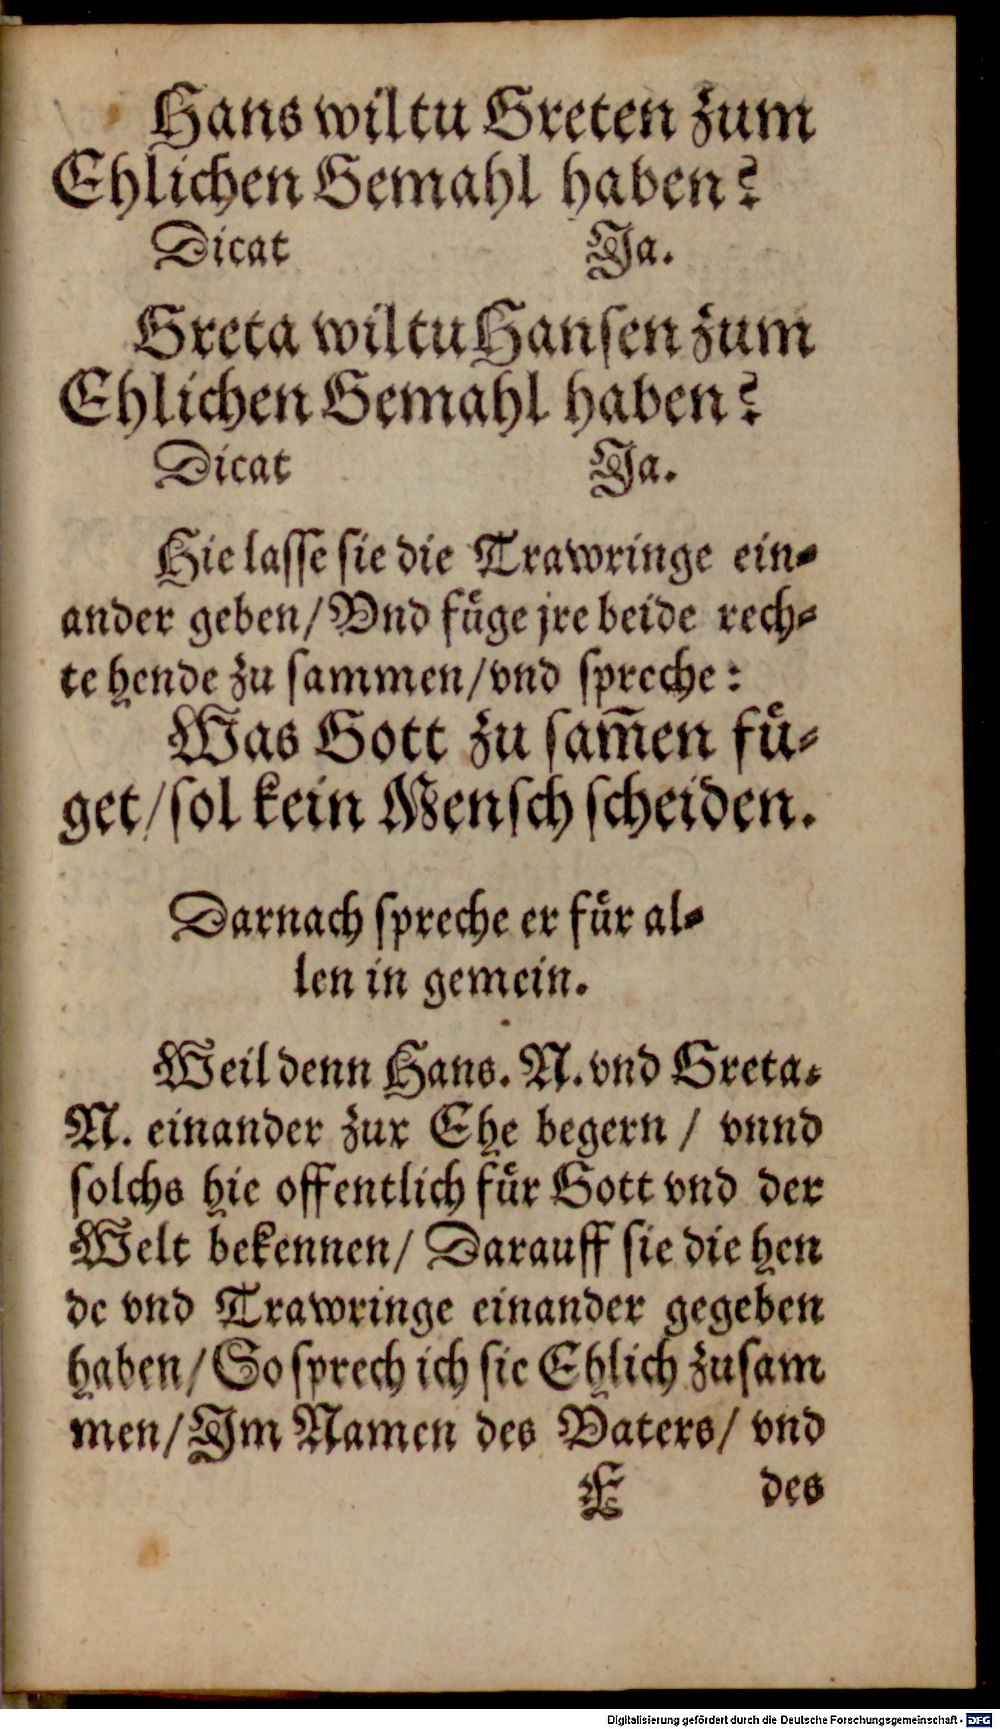 Hans wiltu Greten zum
Ehlichen Gemahl haben?
Dicat Ja.
Greta wiltu Hansen zum
Ehlichen Gemahl haben?
Dicat Ja.
Hie lasse sie die Trawringe ein-
ander geben/ Vnd fuͤge jre beide rech-
te hende zu sammen/ vnd spreche:
Was Gott zu sam̃en fuͤ-
get/ sol kein Mensch scheiden.
Darnach spreche er fuͤr al-
len in gemein.
Weil denn Hans. N. vnd Greta.
N. einander zur Ehe begern / vnnd
solchs hie offentlich fuͤr Gott vnd der
Welt bekennen/ Darauff sie die hen
de vnd Trawringe einander gegeben
haben/ So sprech ich sie Ehlich zusam
men/ Im Namen des Vaters/ vnd
E des
Digitalisierung gefördert durch die Deutsche Forschungsgemeinschaft - DFG